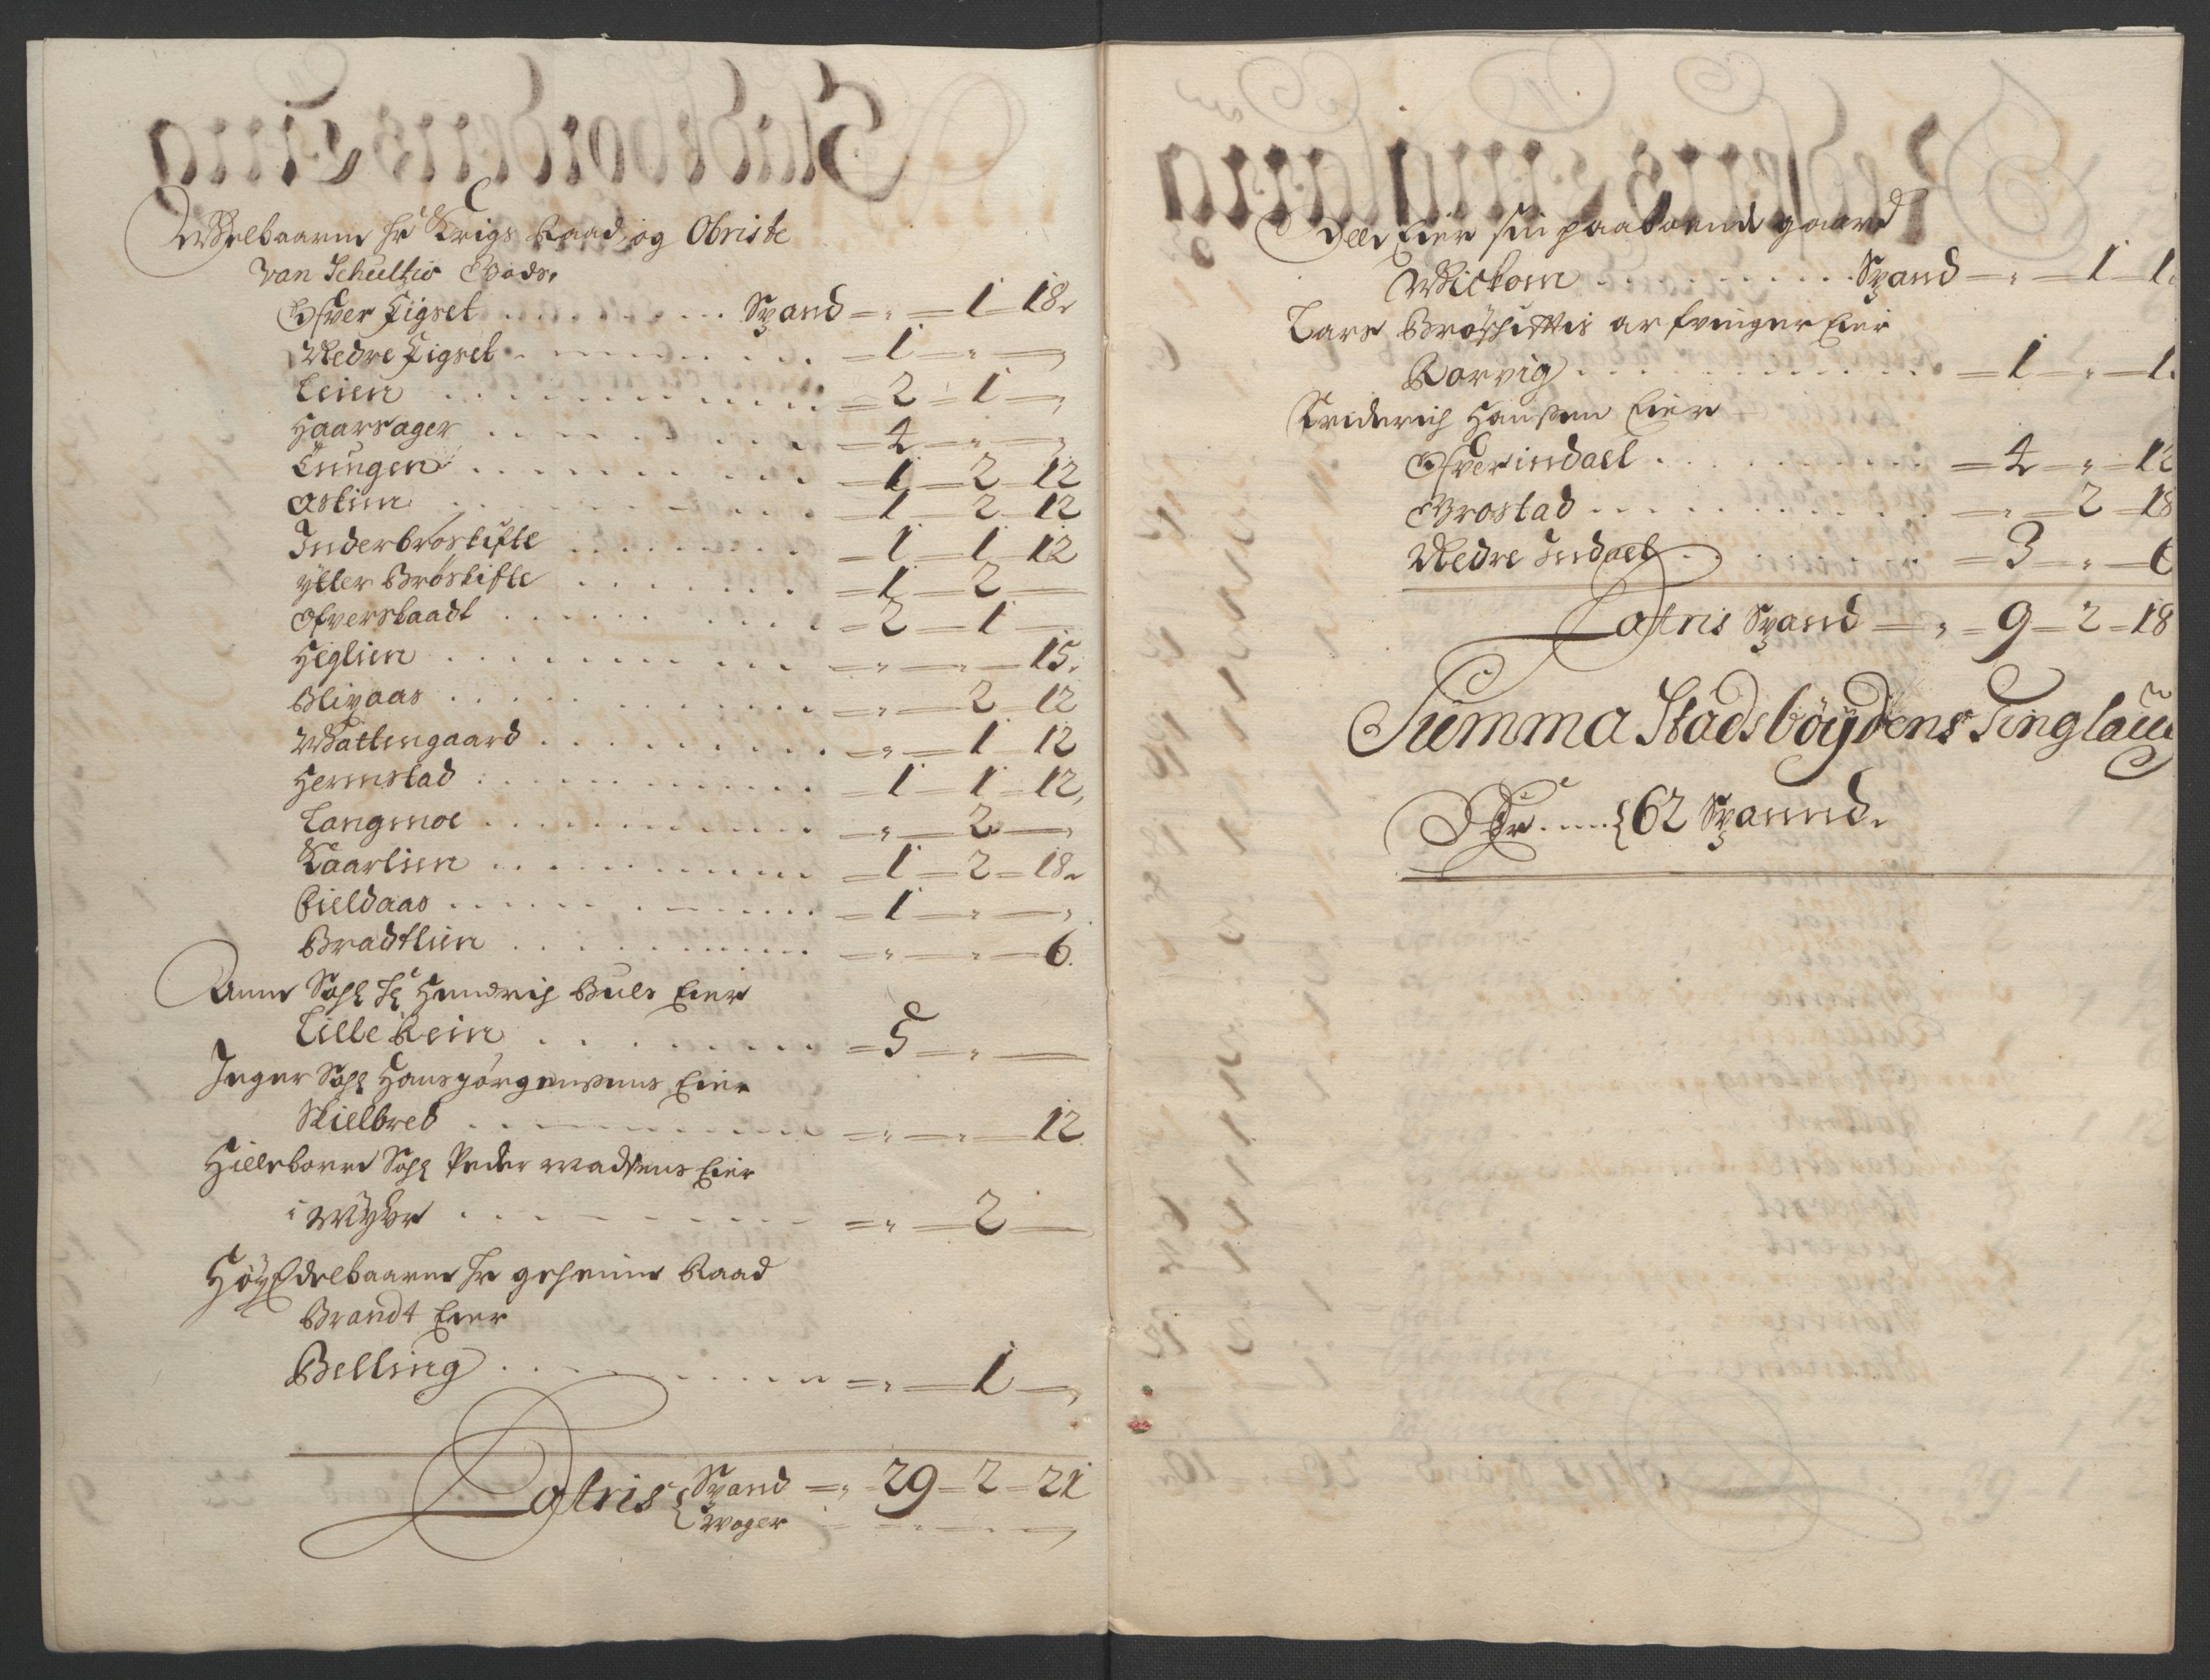 Welbaarne Hr Krigs Raad, og Obriste
Van Schultzis Gods,
Ofver Figset . . . Spand = „ = 1 = 18„
Nedre Figset . . . = 1 = „ =
Leien . . . = 2 = 1 =
Haarsager . . . = 4 = „ =
Tungen . . . = 1 = 2 = 12
Østim . . . = 1 = 2 = 12
Inderbrøskifte . . . = 1 = 1 = 12
ytter Brøskifte . . . = 1 = 2 =
Ofverstaadt . . . = 2 = 1 =
Heglien . . . = „ = „ = 15„
Slipaas . . . = „ = 2 = 12
Wattengaard . . . = „ = 1 = 12
Hermstad . . . = 1 = 1 = 12,
Langmoe . . . = „ = 2 =
Kaarlien . . . = 1 = 2 = 18„
Fieldaas . . . = 1 = „ =
Bradtlien . . . = „ = „ = 6.
Anne Sahl Hr Hendrich Buls Eier
Lille Rein . . . = 5 = „ =
Inger Sahl Hans Jørgensens Eier
Skielbred . . . = „ = „ = 12
Hilleborre Sahl Peder Madsens Eier
i Myhr . . . = „ = 2 =
HøyEdelbaarne Hr geheime Raad
Brandt Eier
Belling . . . = „ = 1 =
Latris { Spand = „ = 29 = 2 = 21
Woger = „ = „ =
Selv Eier sin paaboende gaard
Wickom . . . Spand = „ = 1 = 1
Lars Brøskiftis arfvinger Eier
Rorvig . . . = 1 = „ = 1
Friderich Hansen Eier
Ofverindael . . . = 4 = „ = 12
Grostad . . . = „ = 2 = 18
Nedre Indael . . . = 3 = „ = 6
Latris Spand = „ = 9 = 2 = 18
Summa Stadsbøydens Tinglau
Er . . . { 62 Spannd.